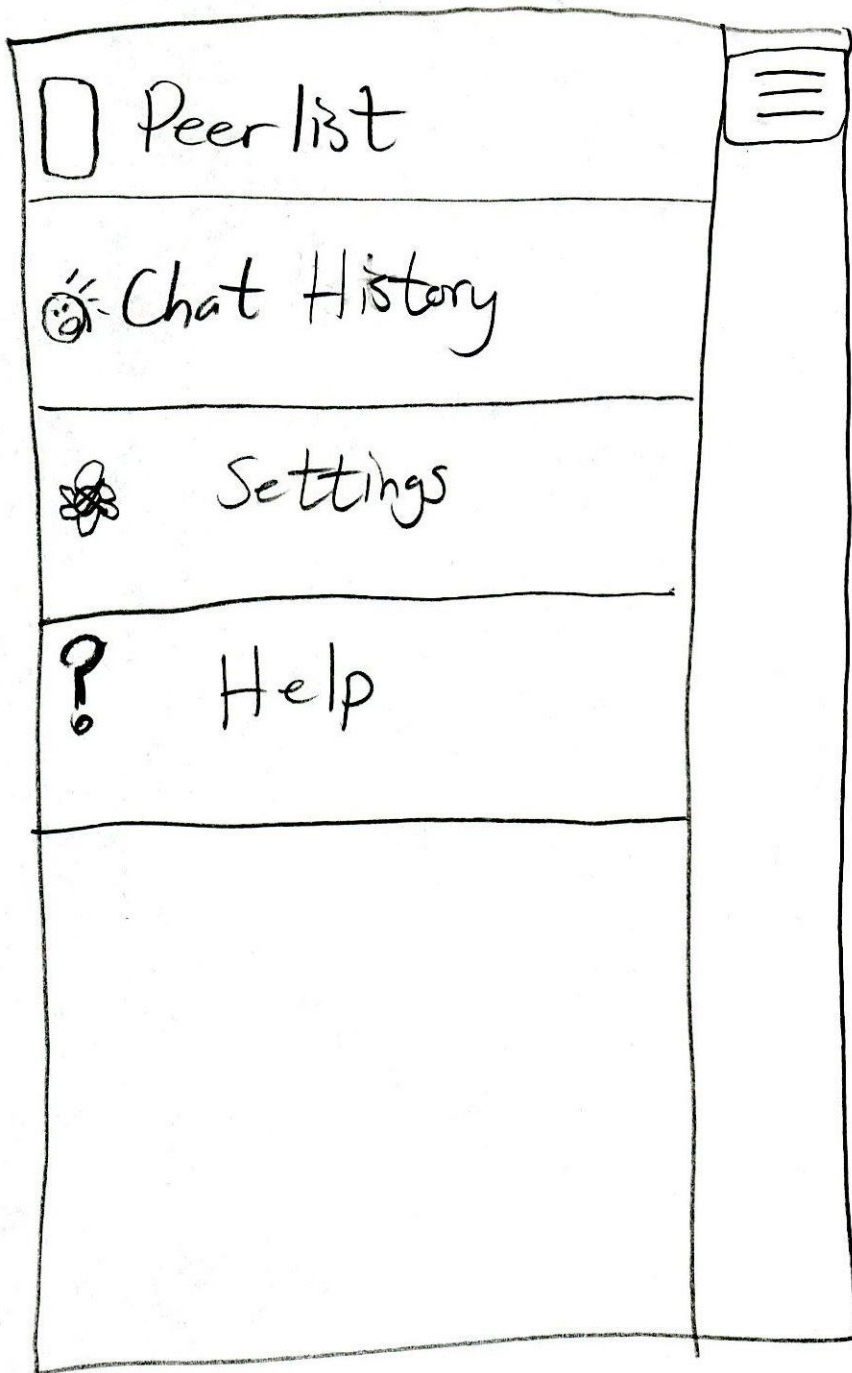 Peer list
Chat History
Settings
? Help